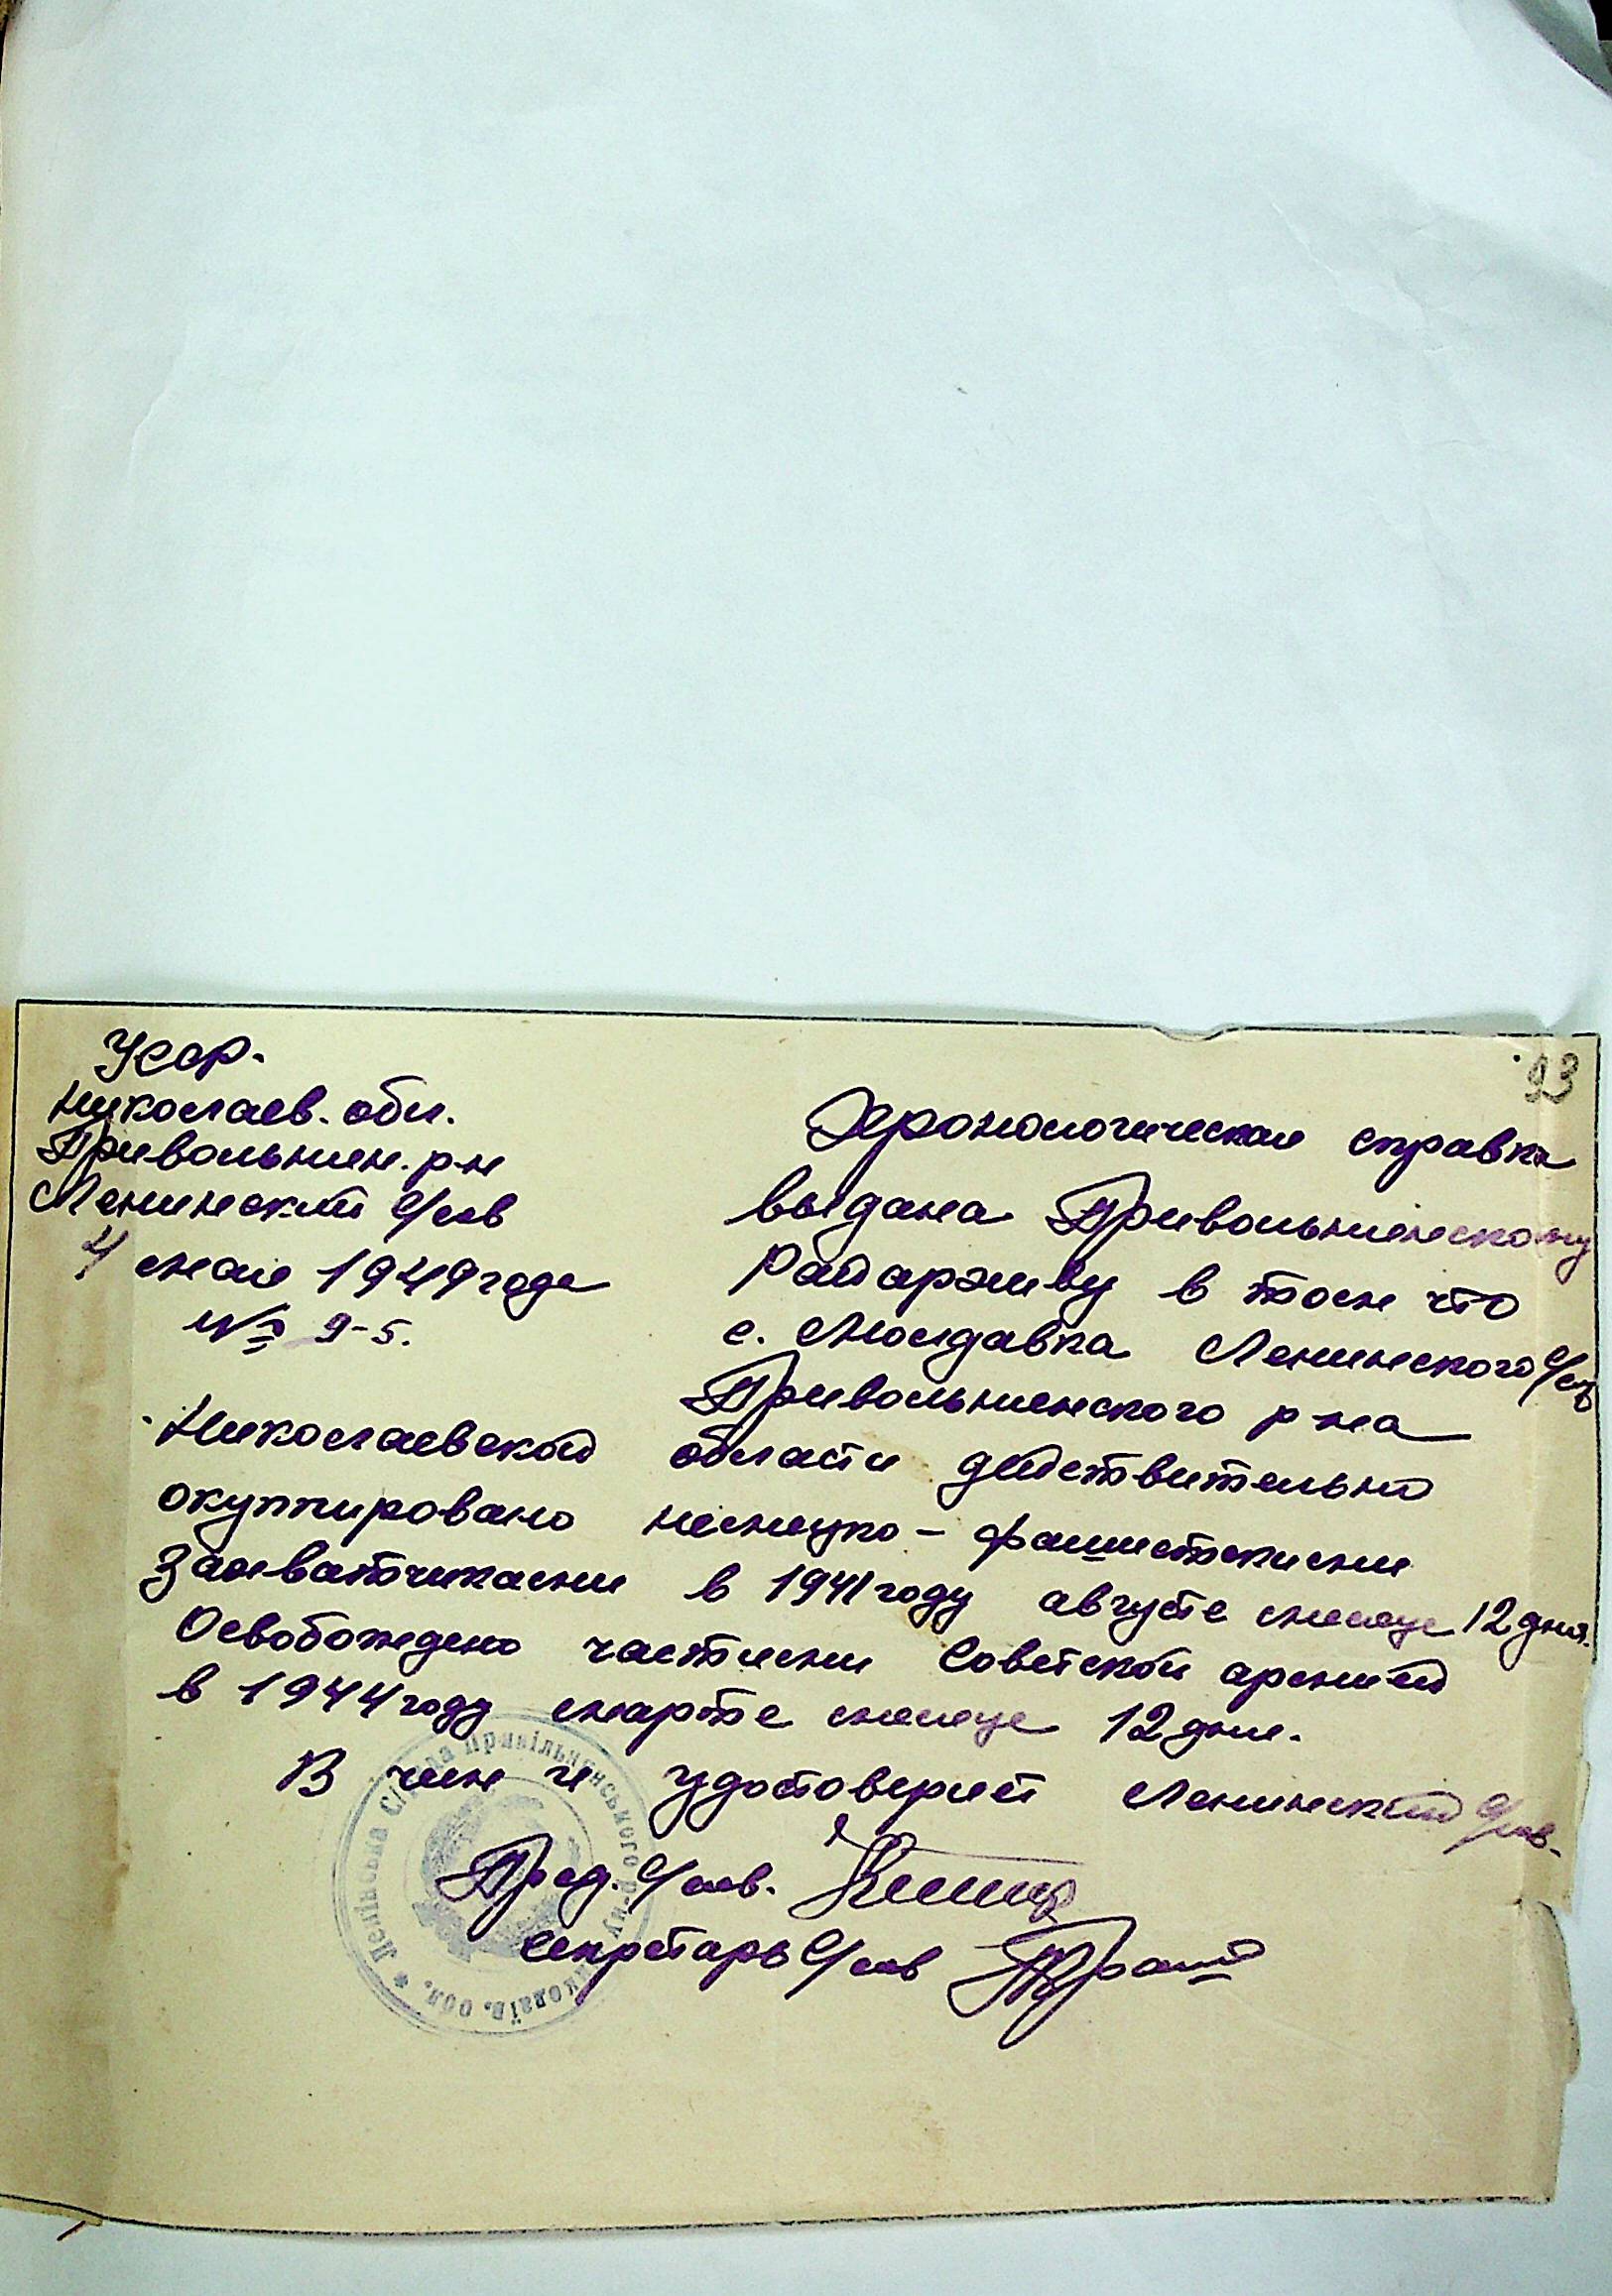 93
Усср.
Николаев. обл.
Привольнян. р-н
Ленинский с/сов
4 мая 1949 года
№ 9-5.
Хронологическая справка
выдана Привольнянскому
Райархиву в том что
с. Молдавка Ленинского с/сов
Привольнянского р-на
Николаевской области действительно
окупировано немецко-фашистскими
захватчиками в 1941 году августе месяце 12 дня.
Освобождено частями Советской армией
в 1944 году марте месяце 12 дня.
В чем и удостоверяет Ленинский с/сов.
Пред. с/сов.
Секретарь с/сов
* Ленінська С/Рада Привільнянського р-ну Миколаїв. обл.